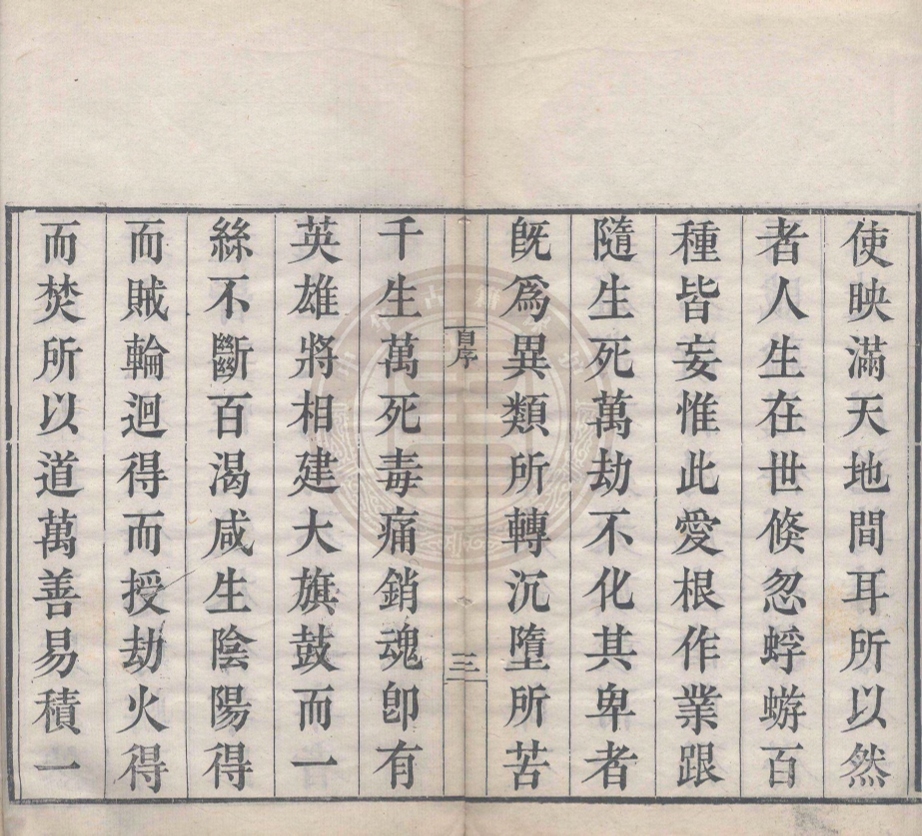 使映滿天地間耳所以然
者人生在世倐忽蜉蝣百
種皆妄惟此愛根作業跟
隨生死萬劫不化其卑者
旣爲異類所轉沉墮所苦
自序
三
千生萬死毒痛銷魂卽有
英雄將相建大旗鼓而一
絲不斷百渴咸生陰陽得
而賊輪迴得而授劫火得
而焚所以道萬善易積一